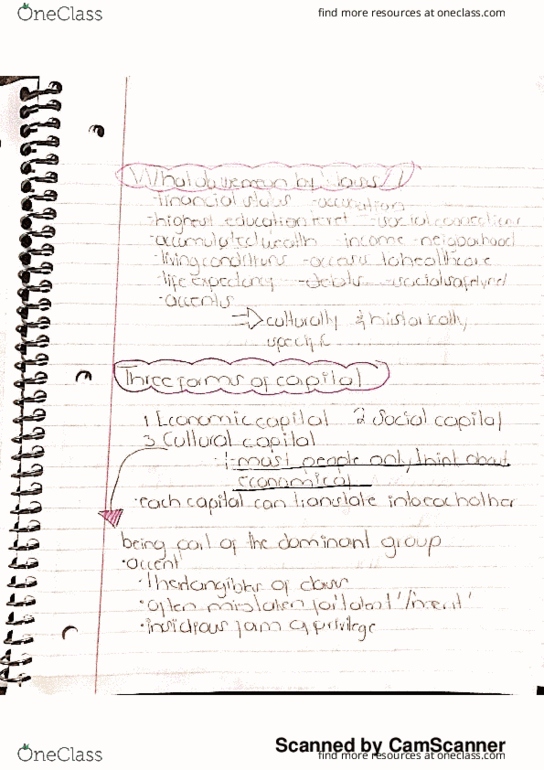 OneClass
find more resources at oneclass.com
What do we mean by "class"?
-financial status -occupation
-highest education level -social connections
-accumulated wealth income -neighborhood
-living conditions -access to healthcare
-life expectancy -debts -social safety net
-accents
=> culturally & historically
specific
Three forms of capital
1 Economic capital 2 Social capital
3 Cultural capital
most people only think about
economical
·each capital can translate into each other
being part of the dominant group
·accent
·The tangibles of class
·often mistaken for 'talent'/'merit'
·insidious form of privilege
Scanned by CamScanner
OneClass
find more resources at oneclass.com